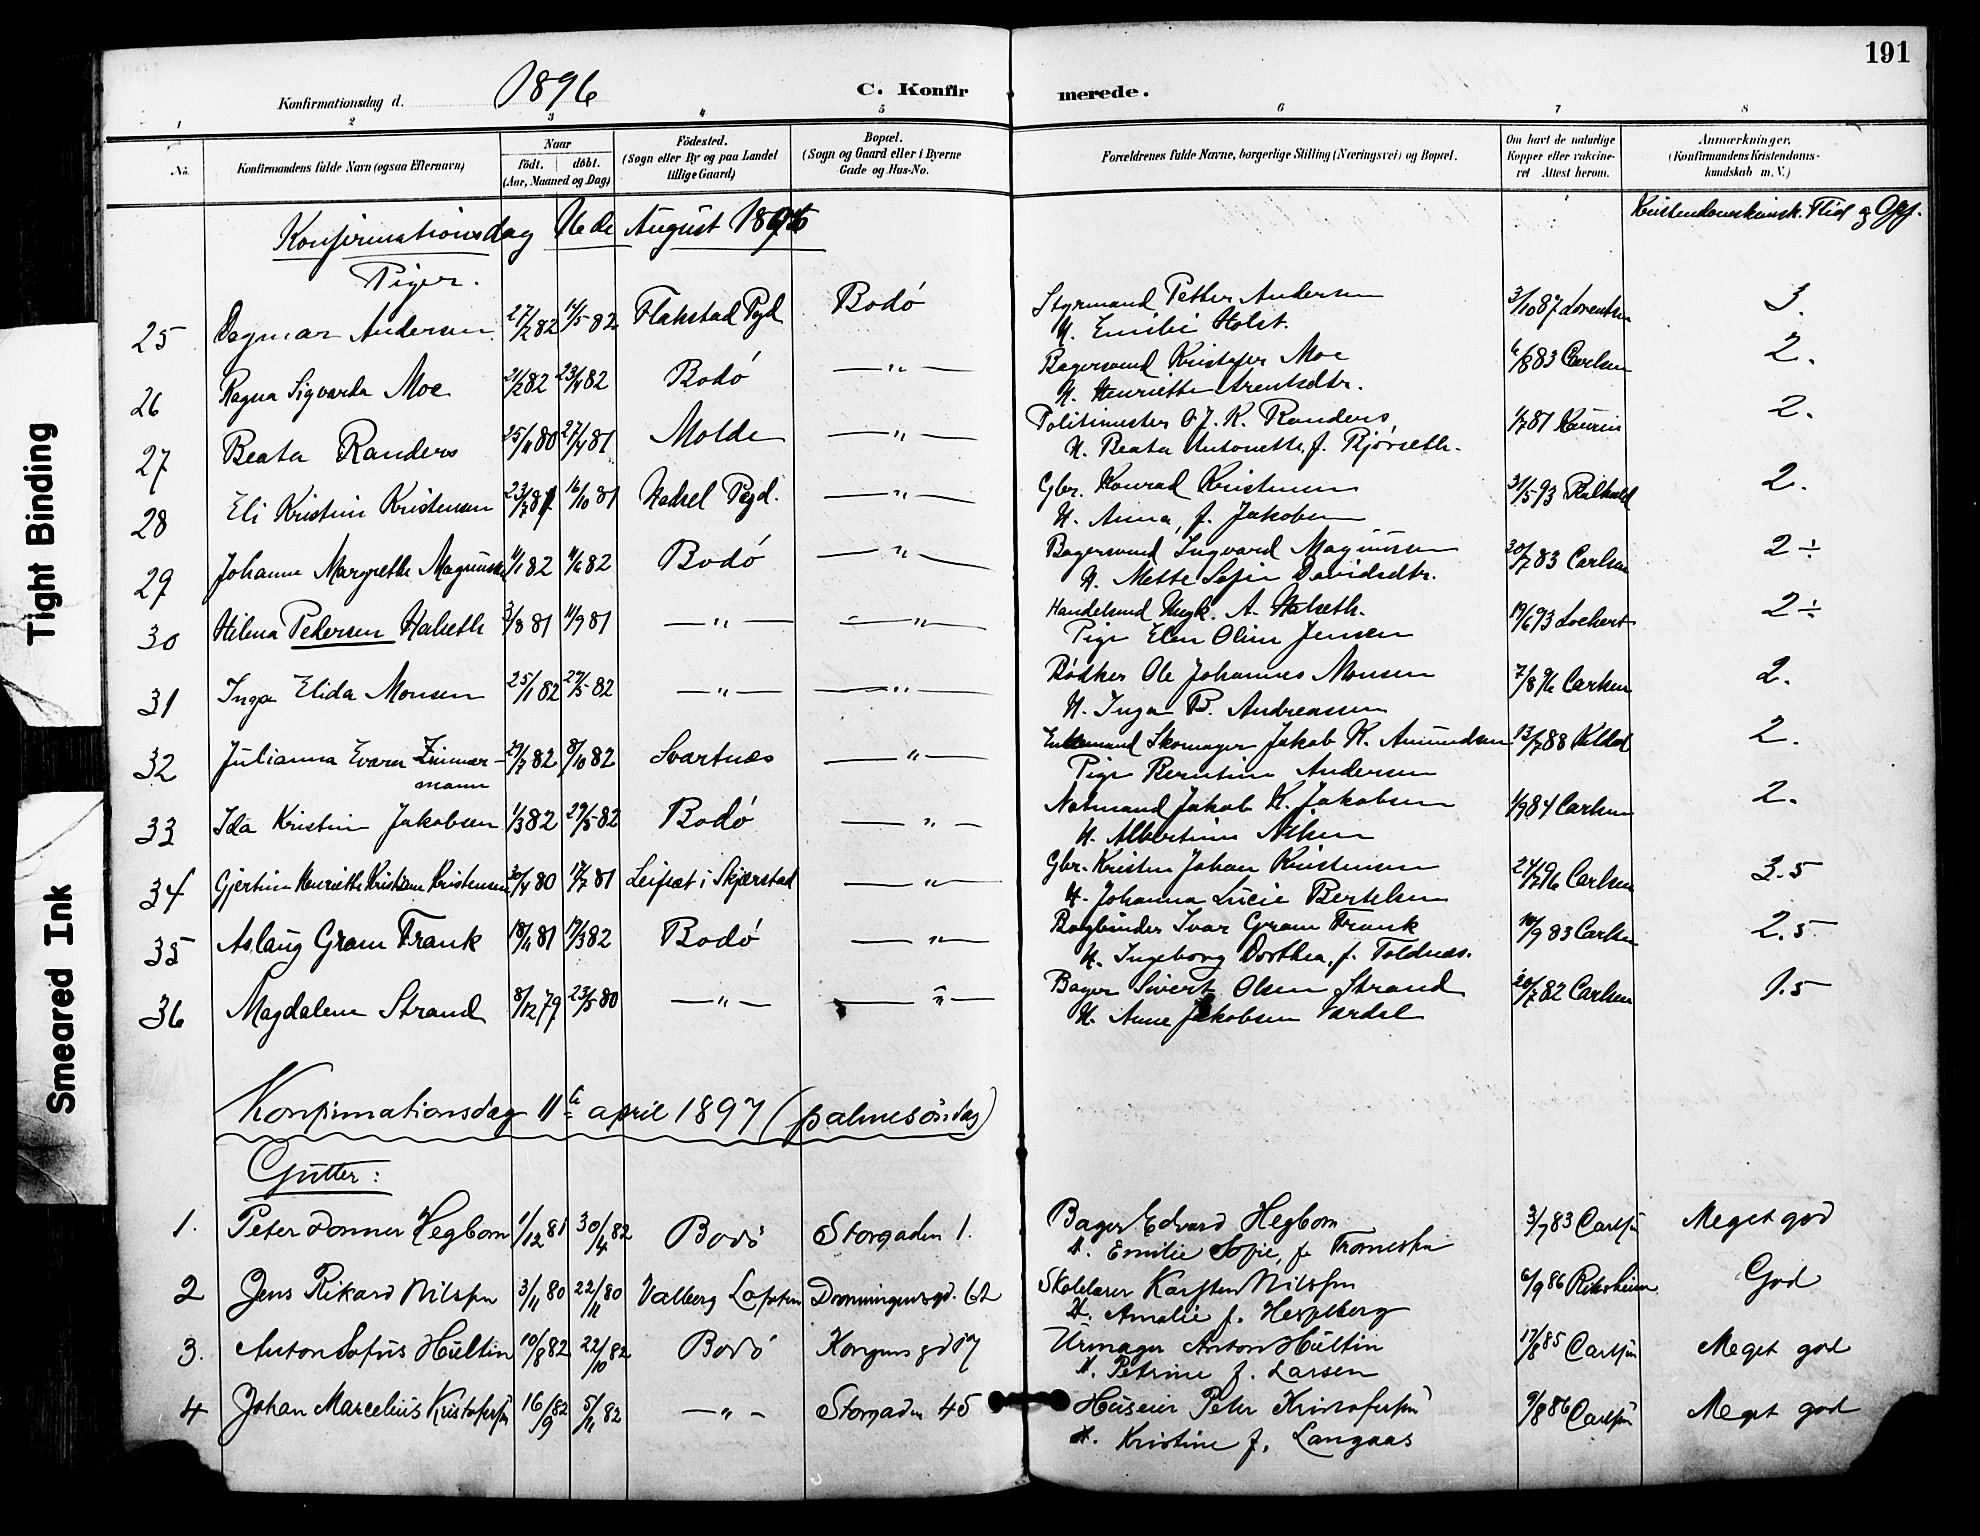 191
Konfirmationsdag d. 1896 C. Konfirmerede.
1 2 3 4 5 6 7 8
No. Konfirmandens fulde Navn (ogsaa Efternavn) Naar födt. döbt. (Aar, Maaned og Dag) Födested. (Sogn eller By og paa Landet tillige Gaard) Bopæl. (Sogn og Gaard eller i Byerne Gade og Hus-No. Forældrenes fulde Navne, borgerlige Stilling (Næringsvei) og Bopæl. Om havt de naturlige Kopper eller vaccineret Attest herom. Anmærkninger. (Konfirmandens Kristendomskundskab m. V.)
Konfirmationsdag 16de August 1896 Kristendomskunsk. Flid og Opf.
Piger.
25 Dagmar Andersen 27/2 82 14/5 82 Flakstad Pgd Bodó Styrmand Petter Andersen 3/10 87 Lorentsen 3.
H. Emilie Holst.
26 Ragna Sigvarda Moe 21/2 82 23/4 82 Bodó —"— Bagersvend Kristofer Moe 6/8 83 Carlsen 2.
H. Henriette Arentsdtr.
27 Beata Randers 25/11 80 27/4 81 Molde —"— Politimester O. J. K. Randers 1/7 81 Kaurin 2.
H. Beata Antonette, f. Bjørseth.
28 Eli Kristine Kristensen 23/7 81 16/10 81 Hadsel Pgd. —"— Gbr. Konrad Kristensen 31/5 93 2.
H. Anna, f. Jakobsen
29 Johanna Margrethe Magnussen 11/1 82 11/6 82 Bodó —"— Bagersvend Ingvard Magnussen 30/7 83 Carlsen 2 ÷
H. Mette Sofie Davidsdtr.
30 Hilma Pedersen Halseth 3/8 81 11/9 81 —"— —"— Handelsmd Ungk. A. Halseth. 19/6 93 Lockert 2 ÷
Pige Elen Oline Jensen
31 Inga Elida Monsen 25/1 82 29/5 82 —"— —"— Bødker Ole Johannes Monsen 7/8 96 Carlsen 2.
H. Inga B. Andreassen
32 Julianna Evara Zimmer- 29/7 82 8/10 82 Svartnæs —"— Enkemand Skomager Jakob K. Amundsen 13/7 88 2.
mann Pige Berntine Andersen
33 Ida Kristine Jakobsen 1/3 82 29/5 82 Bodó —"— Notmand Jakob K. Jakobsen 1/9 84 Carlsen 2.
H. Albertine Nilsen
34 Gjertine Henriette Kristiane Kristensen 30/4 80 17/7 81 i Skjerstad —"— Gbr. Kristen Johan Kristensen 24/7 96 Carlsen 3.5
H. Johanna Lucie Bertelsen
35 Aslaug Gram Frank 18/11 81 19/3 82 Bodó —"— Bogbinder Ivar Gram Frank 10/9 83 Carlsen 2.5
H. Ingeborg Dorthea, f. Toldnæs.
36 Magdalene Strand 8/12 79 23/5 80 —"— —"— Bager Sivert Olsen Strand 20/7 82 Carlsen 1.5
H. Anne Jakobsen Værdal
Konfirmationsdag 11te april 1897 (palmesöndag)
Gutter:
1. Peter Donner Hegbom 1/12 81 30/4 82 Bodö Storgaden 1. Bager Edvard Hegbom 3/9 83 Carlsen Meget god
H. Emilie Sofie, f.
2 Jens Rikard Nilssen 3/11 80 22/11 80 Valberg Lofoten Dronningensgd. 62 Skolelærer Karsten Nilssen 6/9 86 God
H. Amalie f.
3. Anton Sofus Hultin 10/8 82 22/10 82 Bodó Kongens gd 17 Urmager Anton Hultin 17/8 85 Carlsen Meget god
H. Petrine f. Larsen
4 Johan Marcelius Kristofersen 16/9 82 5/11 82 —"— Storgaden 45 Huseier Peter Kristofersen 9/8 86 Carlsen Meget god
H. Kristine f. Langaas
Tight Binding
Smeared Ink